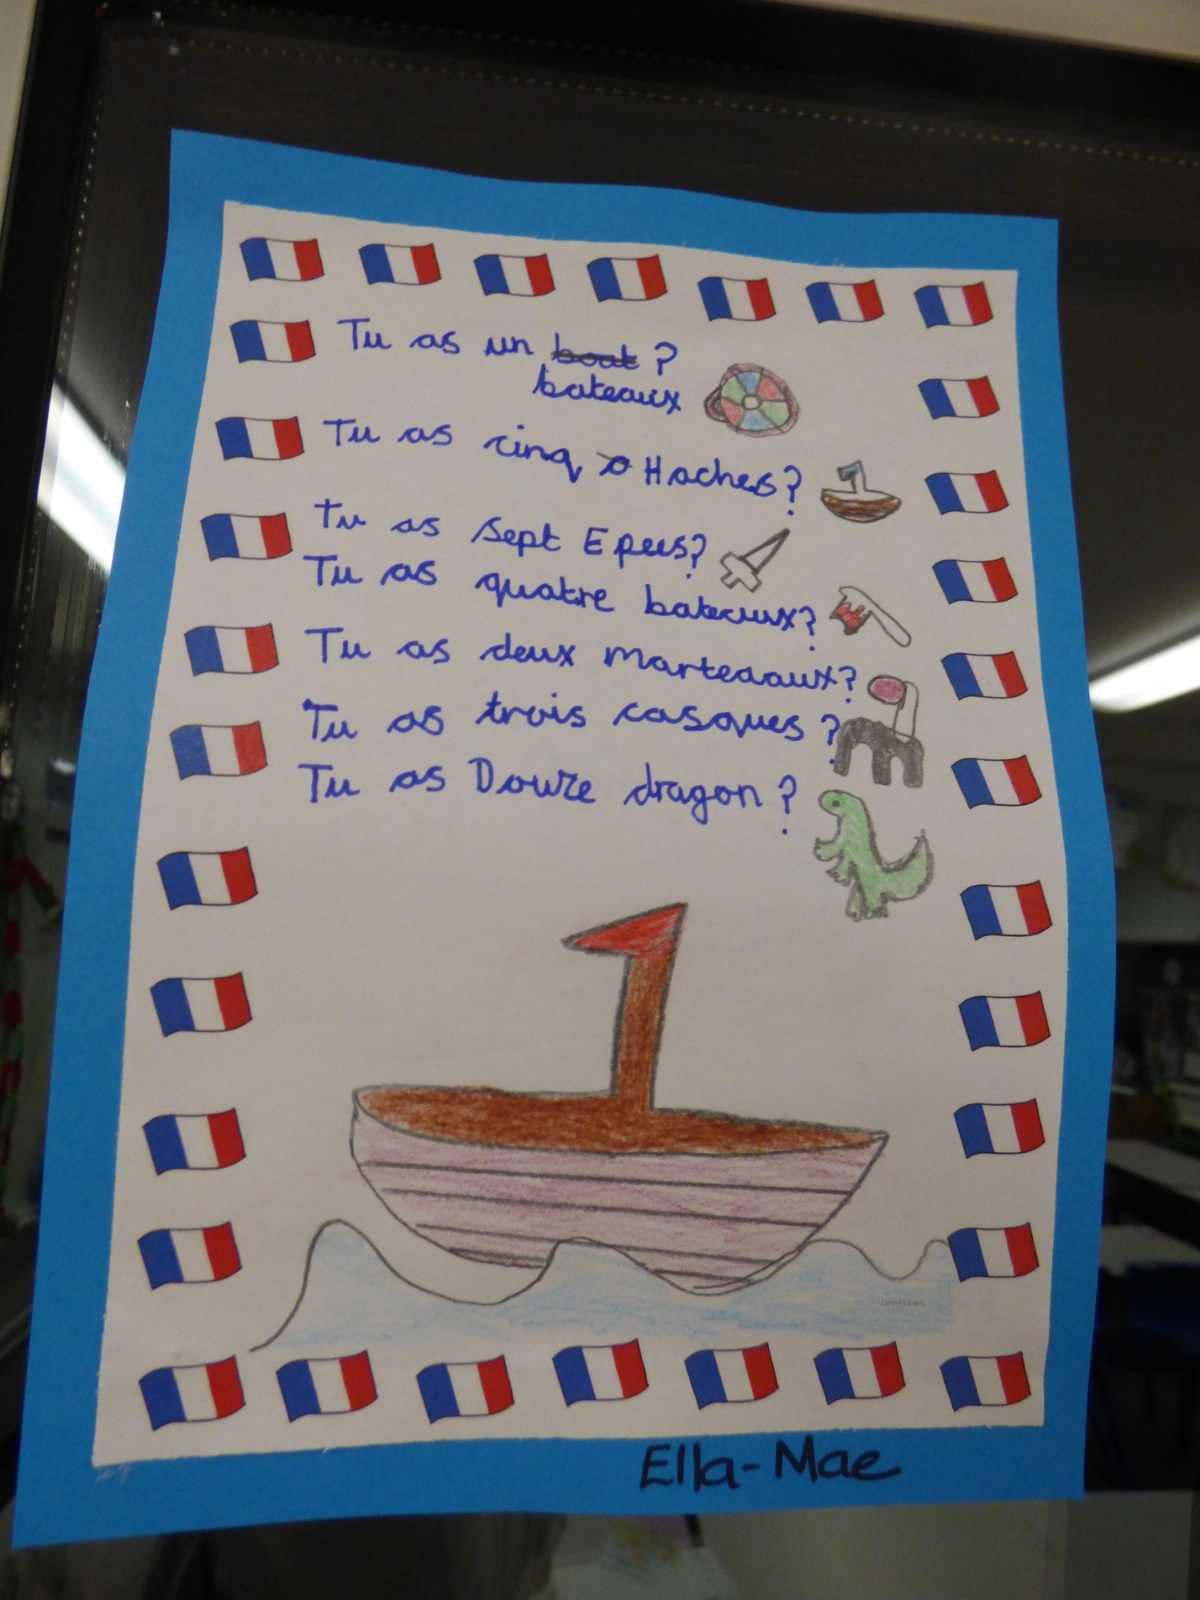 Tu as un boat ?
bateaux
Tu as cinq Haches?
Tu as Sept Epees?
Tu as quatre bateaux?
Tu as deux Marteaaux?
Tu as trois casques ?
Tu as Douze dragon ?
Ella-Mae